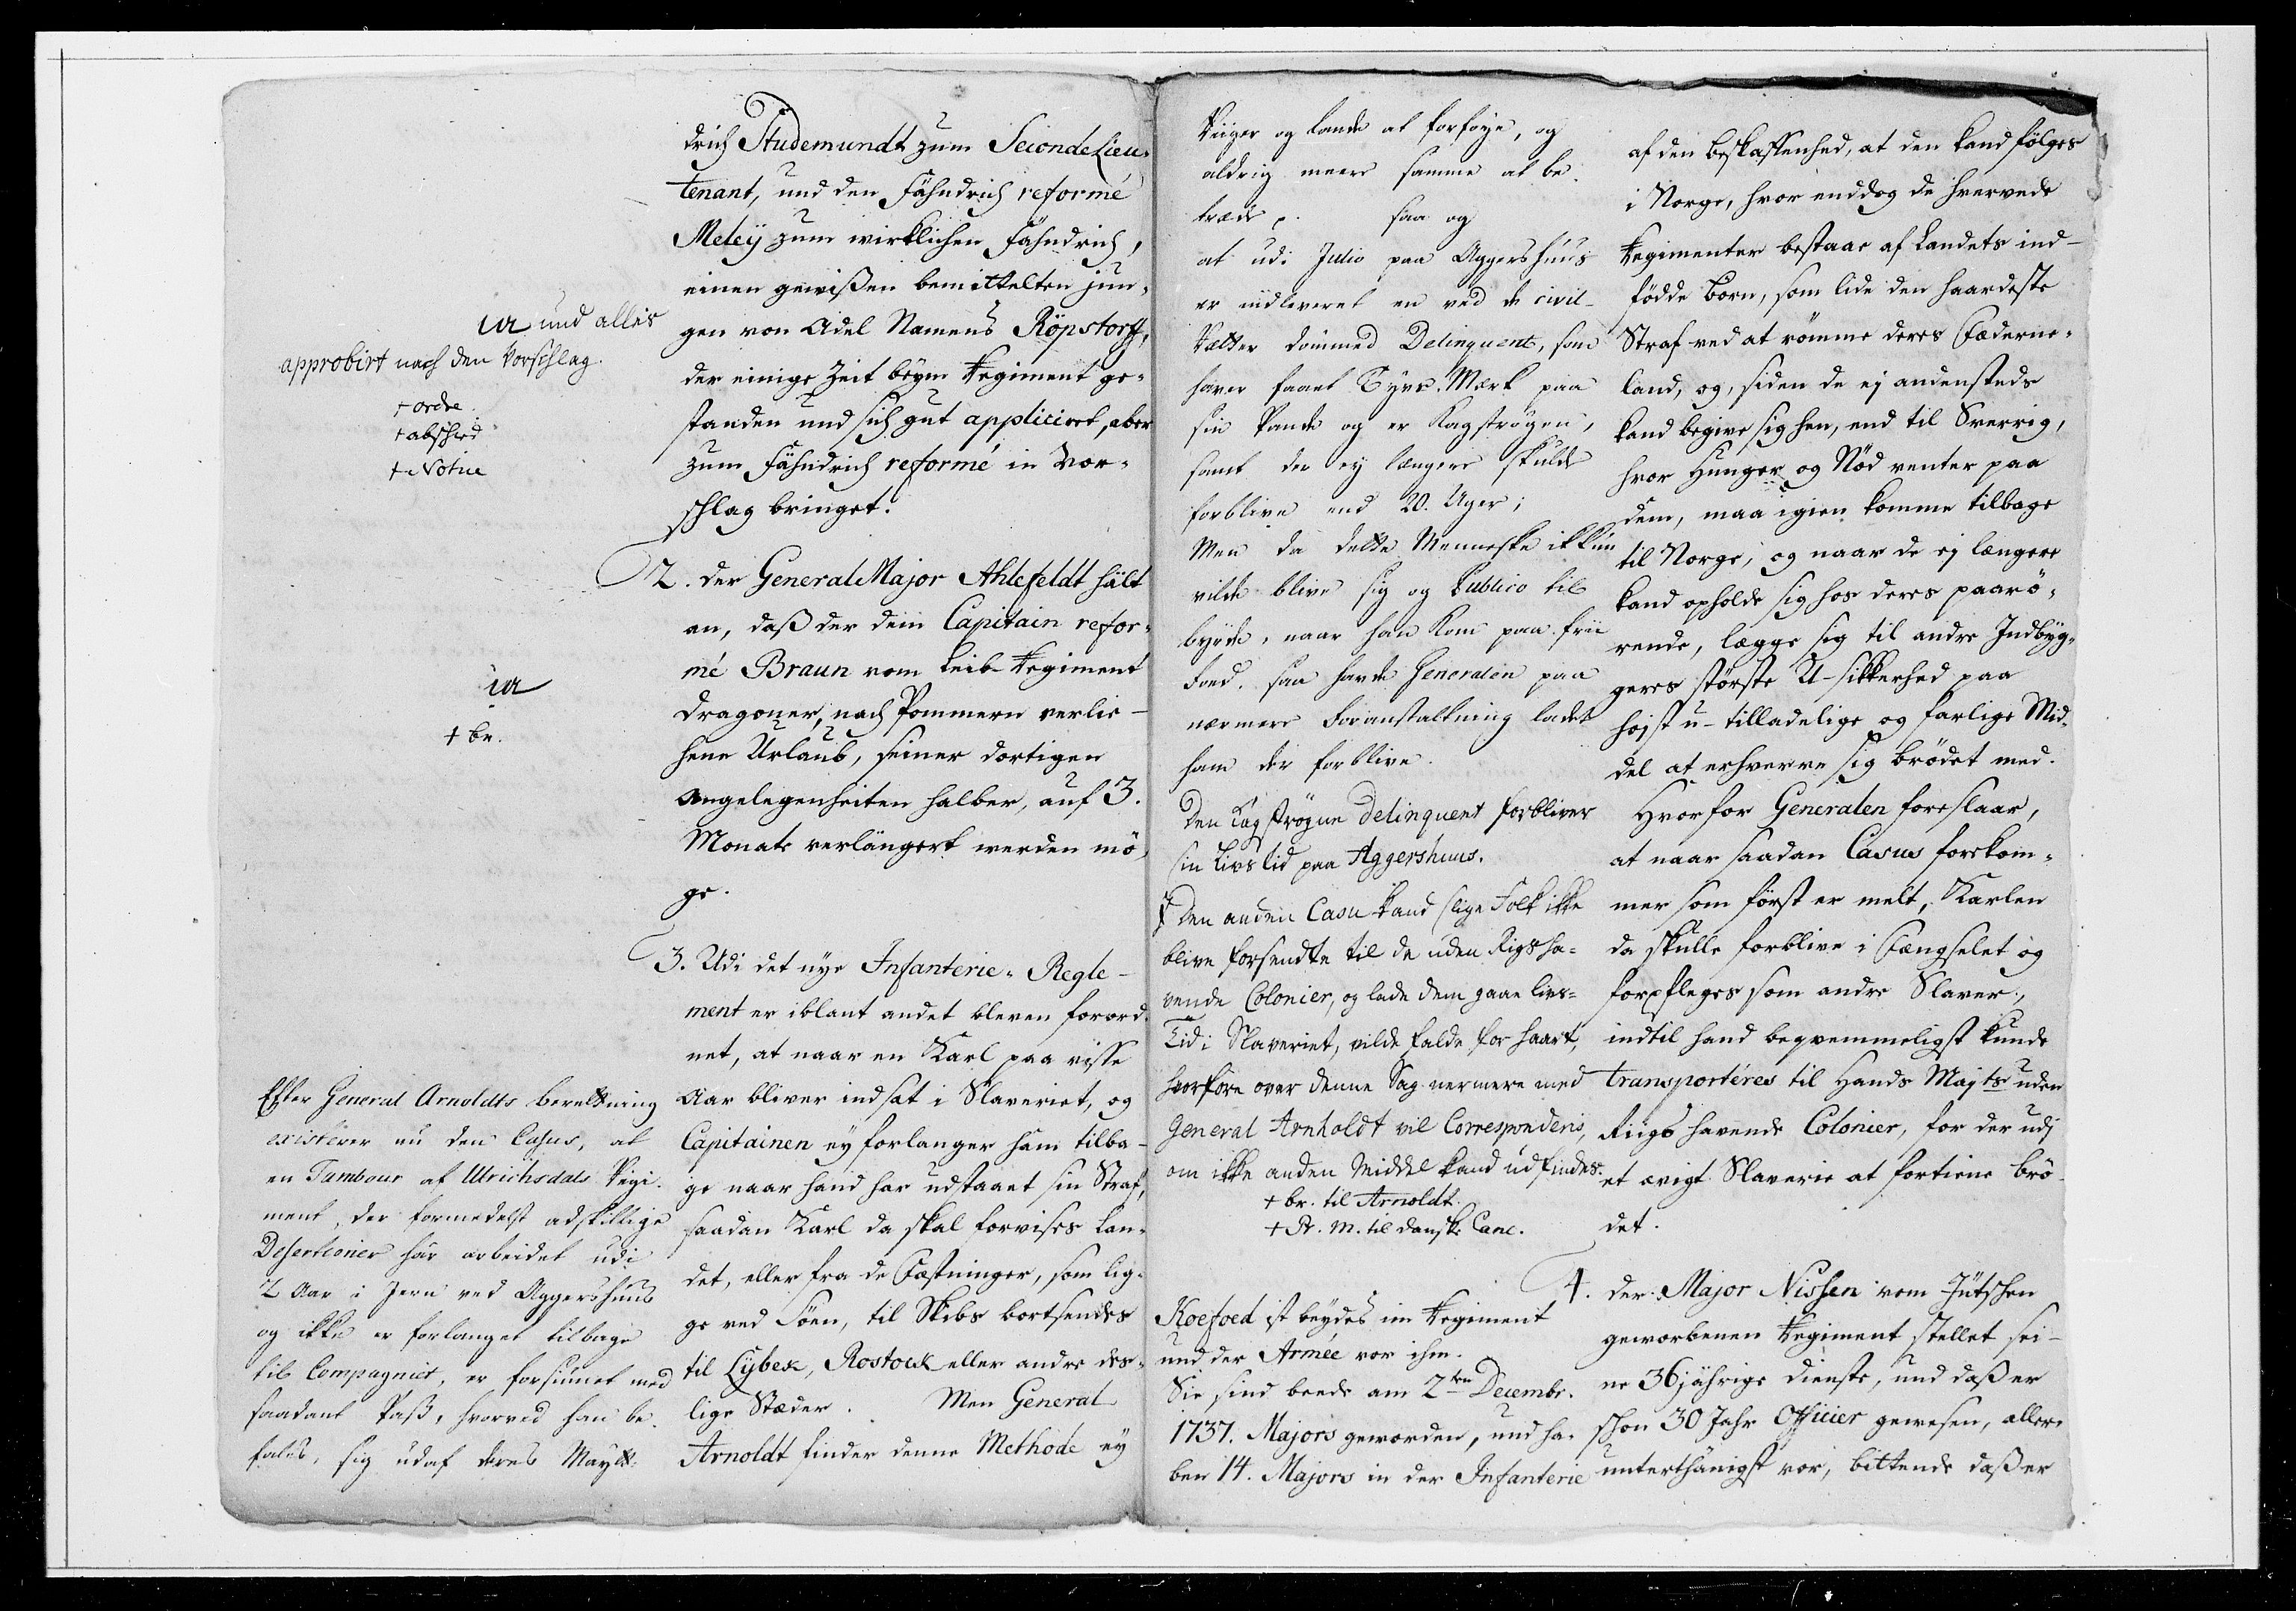 drich Studemundt zum SecondeLieu-
tenant, und den Fähndrich reformé
Meleÿ zum wirklichen Fähndrich,
einen gewißen bemittelten jun-
gen von Adel Namens Röpstorff,
der einige Zeit beÿm Regiment ge-
standen und sich gut appliciret, aber
zum Fähndrich reformé in Vor-
schlag bringet.
ia und alles
approbirt nach den Vorschlag.
+ ordre
+ abschied
+ Notice
2. der GeneralMajor Ahlefeldt hält
an, daß der dem Capitain refor-
mé Braun vom Leib-Regiment
Dragoner, nach Pommern verlie-
hene Urlaub, seiner dortigen
Angelegenheiten halber, auf 3.
Monate verlängert werden mö-
ge.
ia
+ br.
3. Udi det nye Infanterie-Regle-
ment er iblant andet bleven forord-
net, at naar en Karl paa visse
Aar bliver indsat i Slaveriet, og
Capitainen ey forlanger ham tilba-
ge naar hand har udstaaet sin Straf,
saadan Karl da skal forvises Lan-
det, eller fra de Fæstninger, som lig-
ge ved Söen, til Skibs bortsendes
til Lÿbek, Rostock eller andre des-
lige Stæder. Men General
Arnoldt finder denne Methode ey
Efter General Arnoldts beretning
existerer nu den Casus, at
en Tambour af Ulrichsdals Regi-
ment, der formedelst adskillige
Desertioner har arbeidet udi
2 Aar i Jern ved Aggershuus
og ikke er forlanget tilbage
til Compagniet, er forsiunet med
saadant Pass, hvorved han be-
fales, sig udaf deres Maytt.
Riiger og Lande at forföye, og
aldrig meere samme at be-
træde p. saa og
at udi Julio paa Aggershuus
er indleveret en ved de civil-
Retter dömmed Delinquent, som
haver faaet Tyve-Mærk paa
sin Pande og er Kagströgen,
samt der ey længere skulde
forblive end 20. Uger;
Men da dette Menneske ikkun
vilde blive sig og Publico til
byrde, naar han kom paa frie
Foed, saa havde Generalen paa
nærmere Foranstaltning ladet
ham der forblive.
Den Kagströgne Delinquent forbliver
sin Livs tid paa Aggershuus.
I den anden Casu kand slige Folk ikke
blive forsendte til de uden Rigs ha-
vende Colonier, og lade dem gaae livs-
Tid i Slaveriet, vilde falde for haart,
hvorfore over denne Sag nermere med
General Arnholdt vil Correspondens,
om ikke anden Middel kand udfindes.
+ br. til Arnoldt.
+ P. M. til danske Canc.
af den beskaffenhed, at den kand fölges
i Norge, hvor enddog de hvervede
Regimenter bestaae af Landets ind-
födde Börn, som lide den haardeste
Straf ved at römme deres Fæderne-
land, og, siden de ej andensteds
kand begive sig hen, end til Sverrig,
hvor Hunger og Nöd venter paa
dem, maa igien komme tilbage
til Norge, og naar de ej længere
kand opholde sig hos deres paarö-
rende, lægge sig til andre Indbyg-
geres störste U-sikkerhed paa
höjst u-tilladelige og farlige Mid-
del at erhverve sig brödet med.
Hvorfor Generalen foreslaar,
at naar saadan Casus forekom-
mer som först er melt, Karlen
da skulle forblive i Fængselet og
forpfleges som andre Slaver,
indtil hand beqvemmeligst kunde
transportéres til Hands Majts uden
Riigs havende Colonier, for der udj
et ævigt Slaverie at fortiene brö-
det.
4. der Major Nissen vom Jütschen
geworbenen Regiment stellet sei-
ne 36jährige dienste, und daß er
schon 30 Jahr Officier gewesen, aller-
unterthänigst vor, bittende daß er
Koefoed ist beÿdes im Regiment
und der Armée vor ihm.
Sie sind beede am 2ten Decembr.
1737. Majors geworden, und ha-
ben 14. Majors in der Infanterie